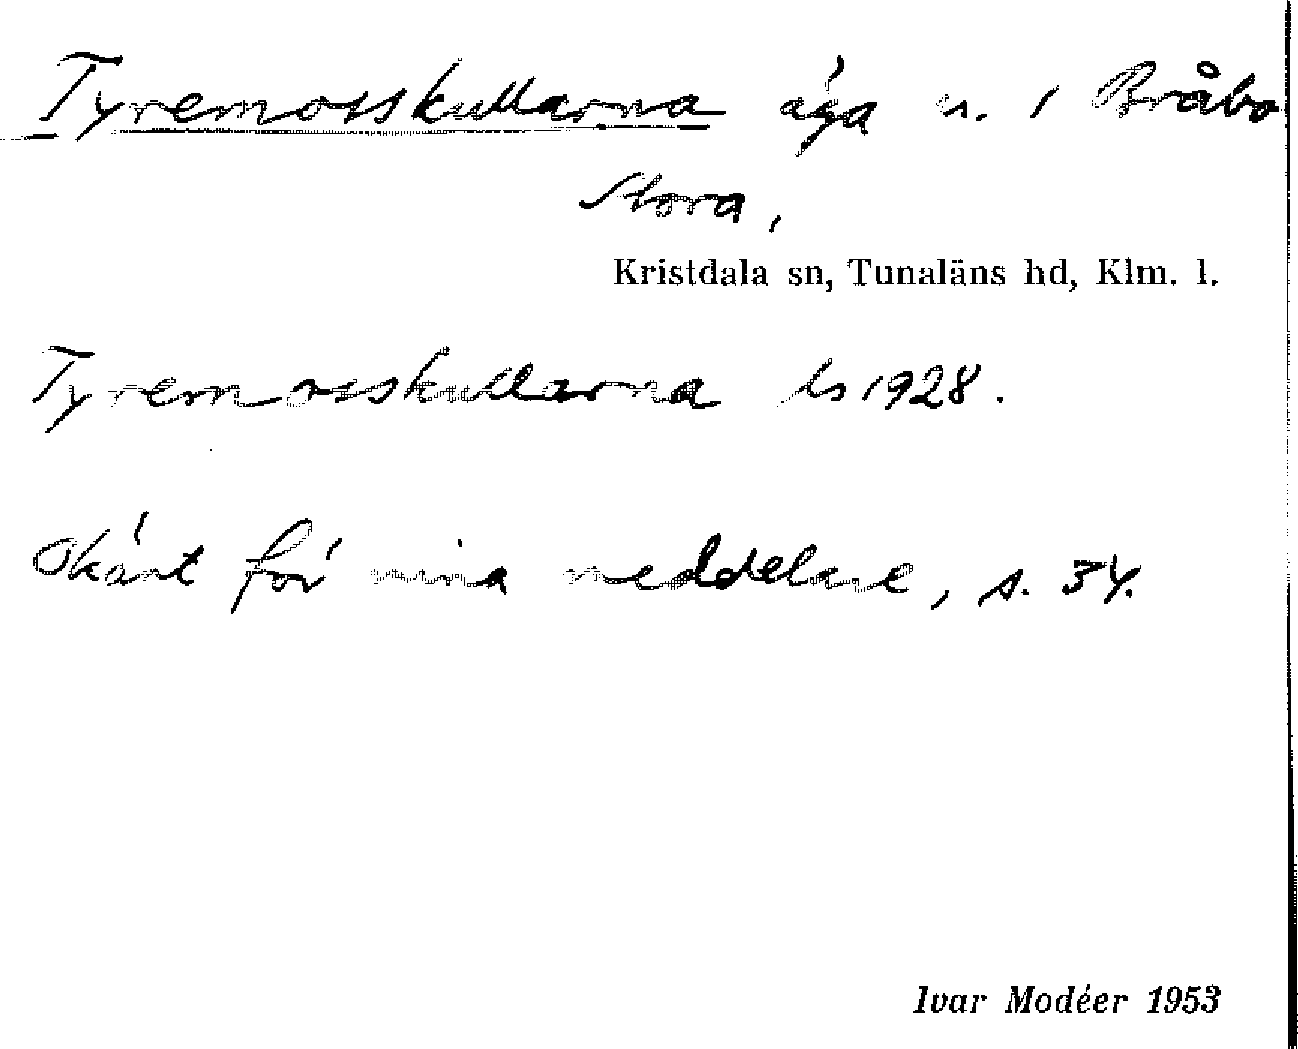 Tyremosskullarna äga n. i Bråbo
Stora,
Kristdala sn, Tunaläns hd, Klm. l.
Tyremosskullarna ls 1928.
Okänt för mina meddelare, s. 34.
Ivar Modéer 1953